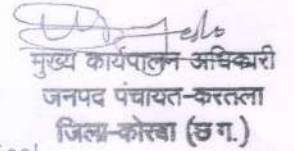 मुख्य कार्यपालन अधिकारी
जनपद पंचायत-करतला
जिला-कोरबा (छ ग.)